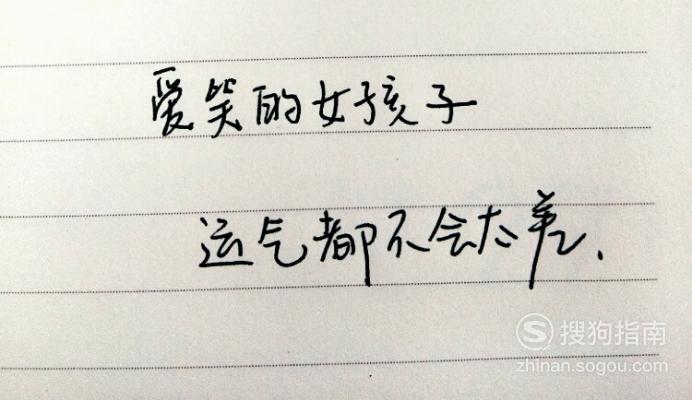 爱笑的女孩子
运气都不会太差、
搜狗指南
zhinan.sogou.com